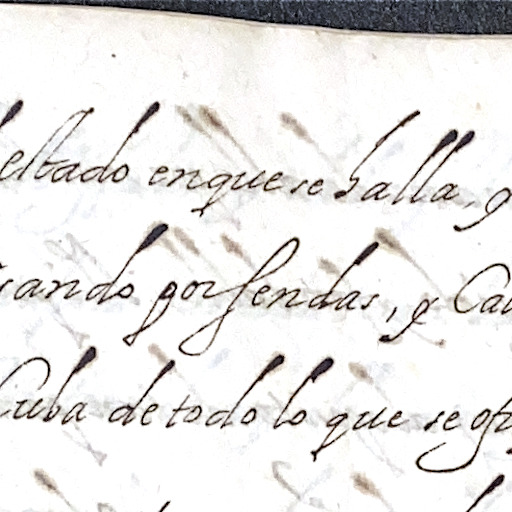 estado en que se halla, y
cando por sendas, y Ca
Cuba de todo lo que se ofr